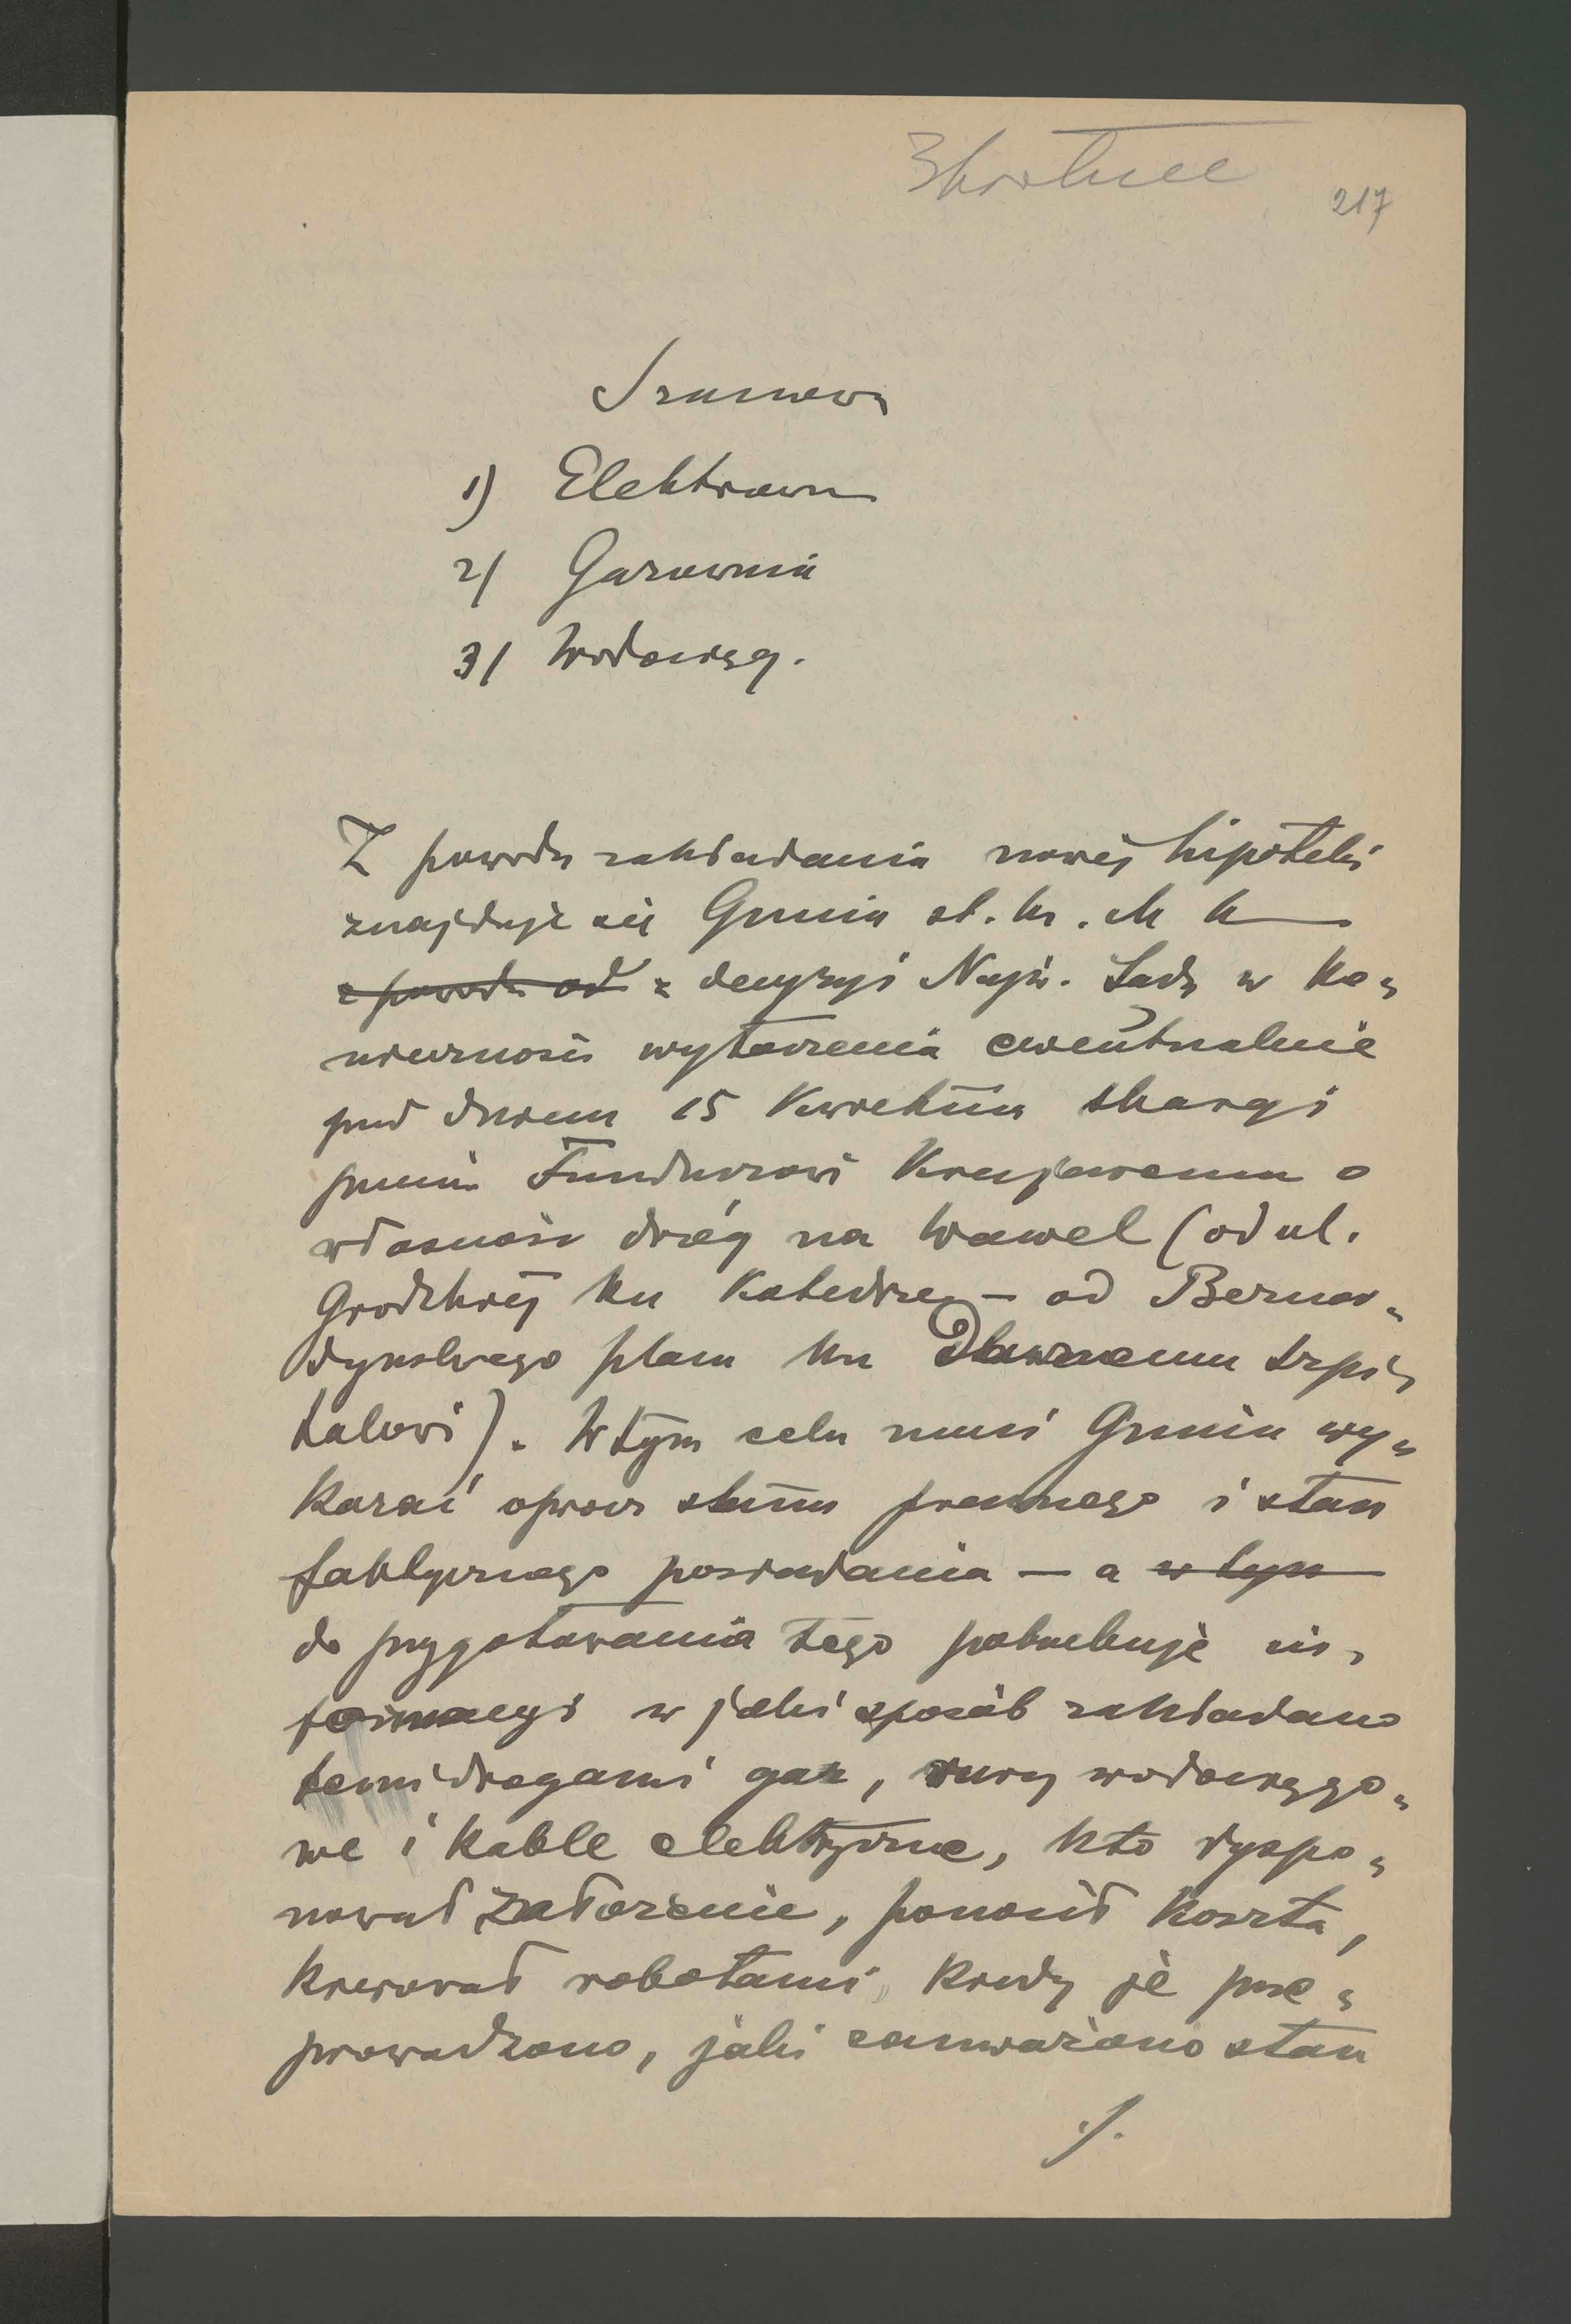 3krotnee
217
Szanown
1) Elektrown
2/ Gazownia
3/ Wodociąg.
Z powodu zakładania nowej hipoteki
znajduje się Gmina st. kr. m. K
z powodu od z decyzyi Najw. Sądu w ko„
nieczności wytoczenia ewentualnie
pod dniem 15 Kwietnia skargi
przeciw Funduszowi Krajowemu o
własność dróg na Wawel (od ul.
Grodzkiej ku Katedrze – od Bernar„
dyńskiego placu ku Dawnemu szpi„
talowi). W tym celu musi Gmina wy„
kazać oprócz stanu prawnego i stan
faktycznego posiadania – a w tym
do przygotowania tego potrzebuje in„
formacyi w jaki sposób zakładano
temi drogami gaz, rury wodociągo„
we i kable elektryczne, kto dyspo„
nował założenie, ponosił koszta,
kierował robotami, kiedy je prze„
prowadzono, jaki zauważono stan
./.